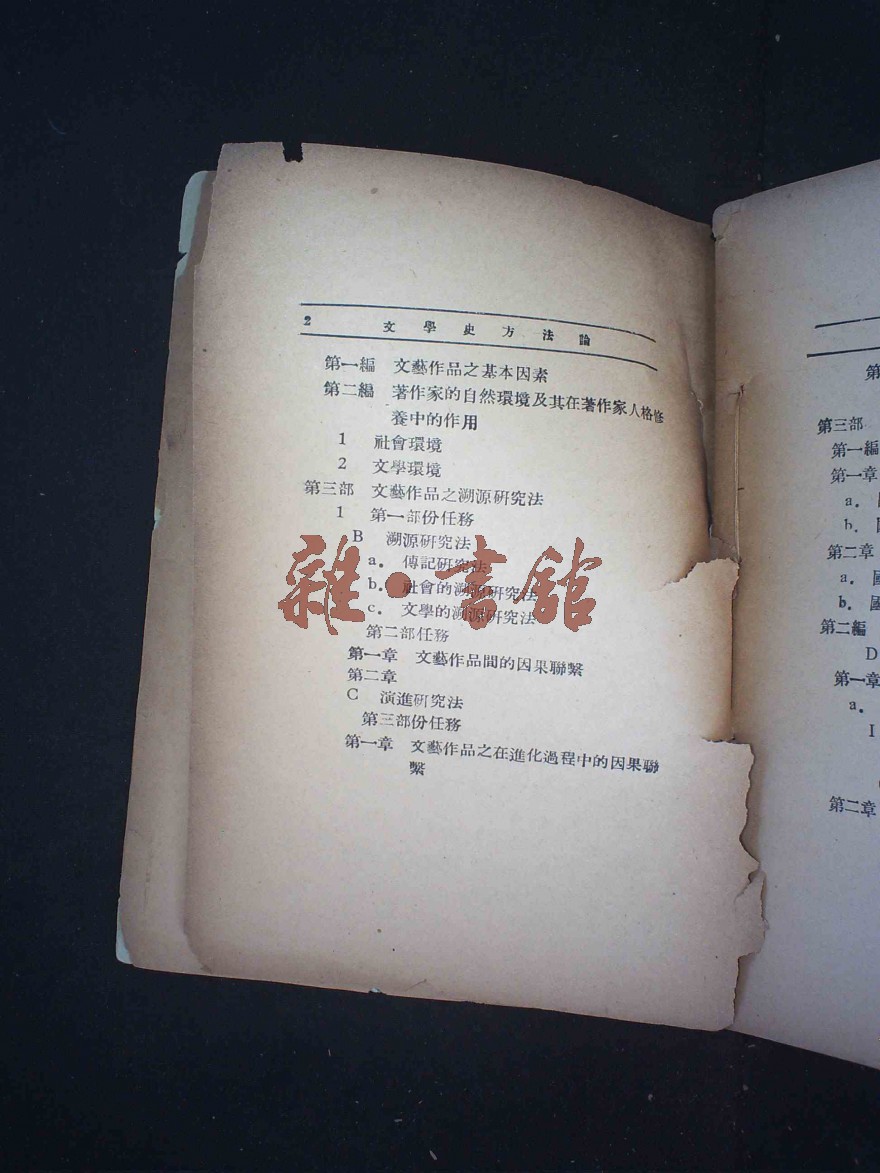 2 文學史方法論
第一編 文藝作品之基本因素
第二編 著作家的自然環境及其在著作家人格修
養中的作用
1 社會環境
2 文學環境
第三部 文藝作品之溯源研究法
1 第一部份任務
B 溯源研究法
a. 傳記研究法
b. 社會的溯源研究法
c. 文學的溯源研究法
第二部任務
第一章 文藝作品間的因果聯繫
第二章
C 演進研究法
第三部份任務
第一章 文藝作品之在進化過程中的因果聯
繫
雜·書館
第
第三部
第一編
第一章
a.
b.
第二章
a. 國
b. 國
第二編
D
第一章
a.
I
第二章